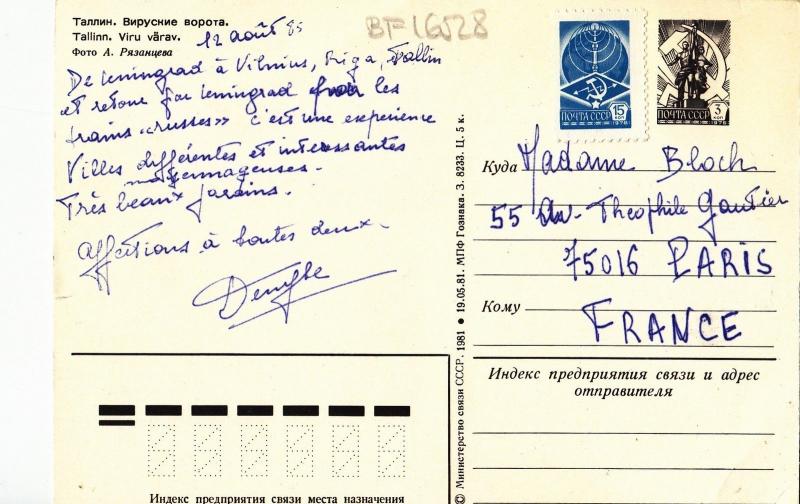 Таллин. Вируские ворота.
Tallinn. Viru värav.
Фото А. Рязанцева
12 août 85
BF 16528
De Leningrad à Vilnius, Riga, Tallin
et retour par Leningrad les
trains «russes» c'est une expérience
Villes différentes et intéressantes
moyenâgeuses.
Très beaux jardins.
Affections à toutes deux.
ПОЧТА СССР 15 КОП 1978
ПОЧТА СССР 3 КОП 1976
Куда Madame Bloch
55 Av. Théophile Gautier
75016 PARIS
Кому
FRANCE
Индекс предприятия связи и адрес
отправителя
Индекс предприятия связи места назначения
© Министерство связи СССР. 1981 • 19.05.81. МПФ Гознака. З. 8233. Ц. 5 к.